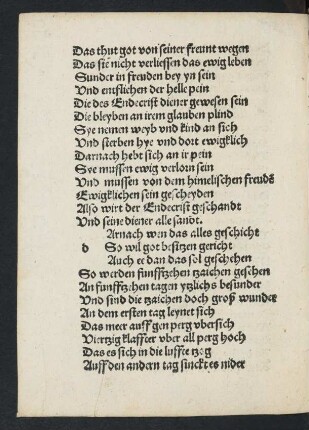 Das thut got von seiner freunt wegen
Das sie nicht verliessen das ewig leben
Sunder in freuden bey yn sein
Vnd entflichen der helle pein
Die des Endecrist diener gewesen sein
Die bleyben an irem glauben plind
Sye nemen weyb vnd kind an sich
Vnd sterben hye vnd dort ewigklich
Darnach hebt sich an ir pein
Sye mussen ewig verlorn sein
Vnd mussen von dem himelischen freudē
Ewigklichen sein gescheyden
Also wirt der Endecrist geschandt
Vnd seine diener alle sandt.
Arnach wen das alles geschicht
d So wil got besitzen gericht
Auch ee dan das sol geschehen
So werden funffzehen tzaichen gesehen
An funffzehen tagen ytzlichs besunder
Vnd sind die tzaichen doch groß wunder
An dem ersten tag leynet sich
Das meer auff gen perg vbersich
Viertzig klaffter vber all perg hoch
Das es sich in die luffte tzog
Auff den andern tag sinckt es nider